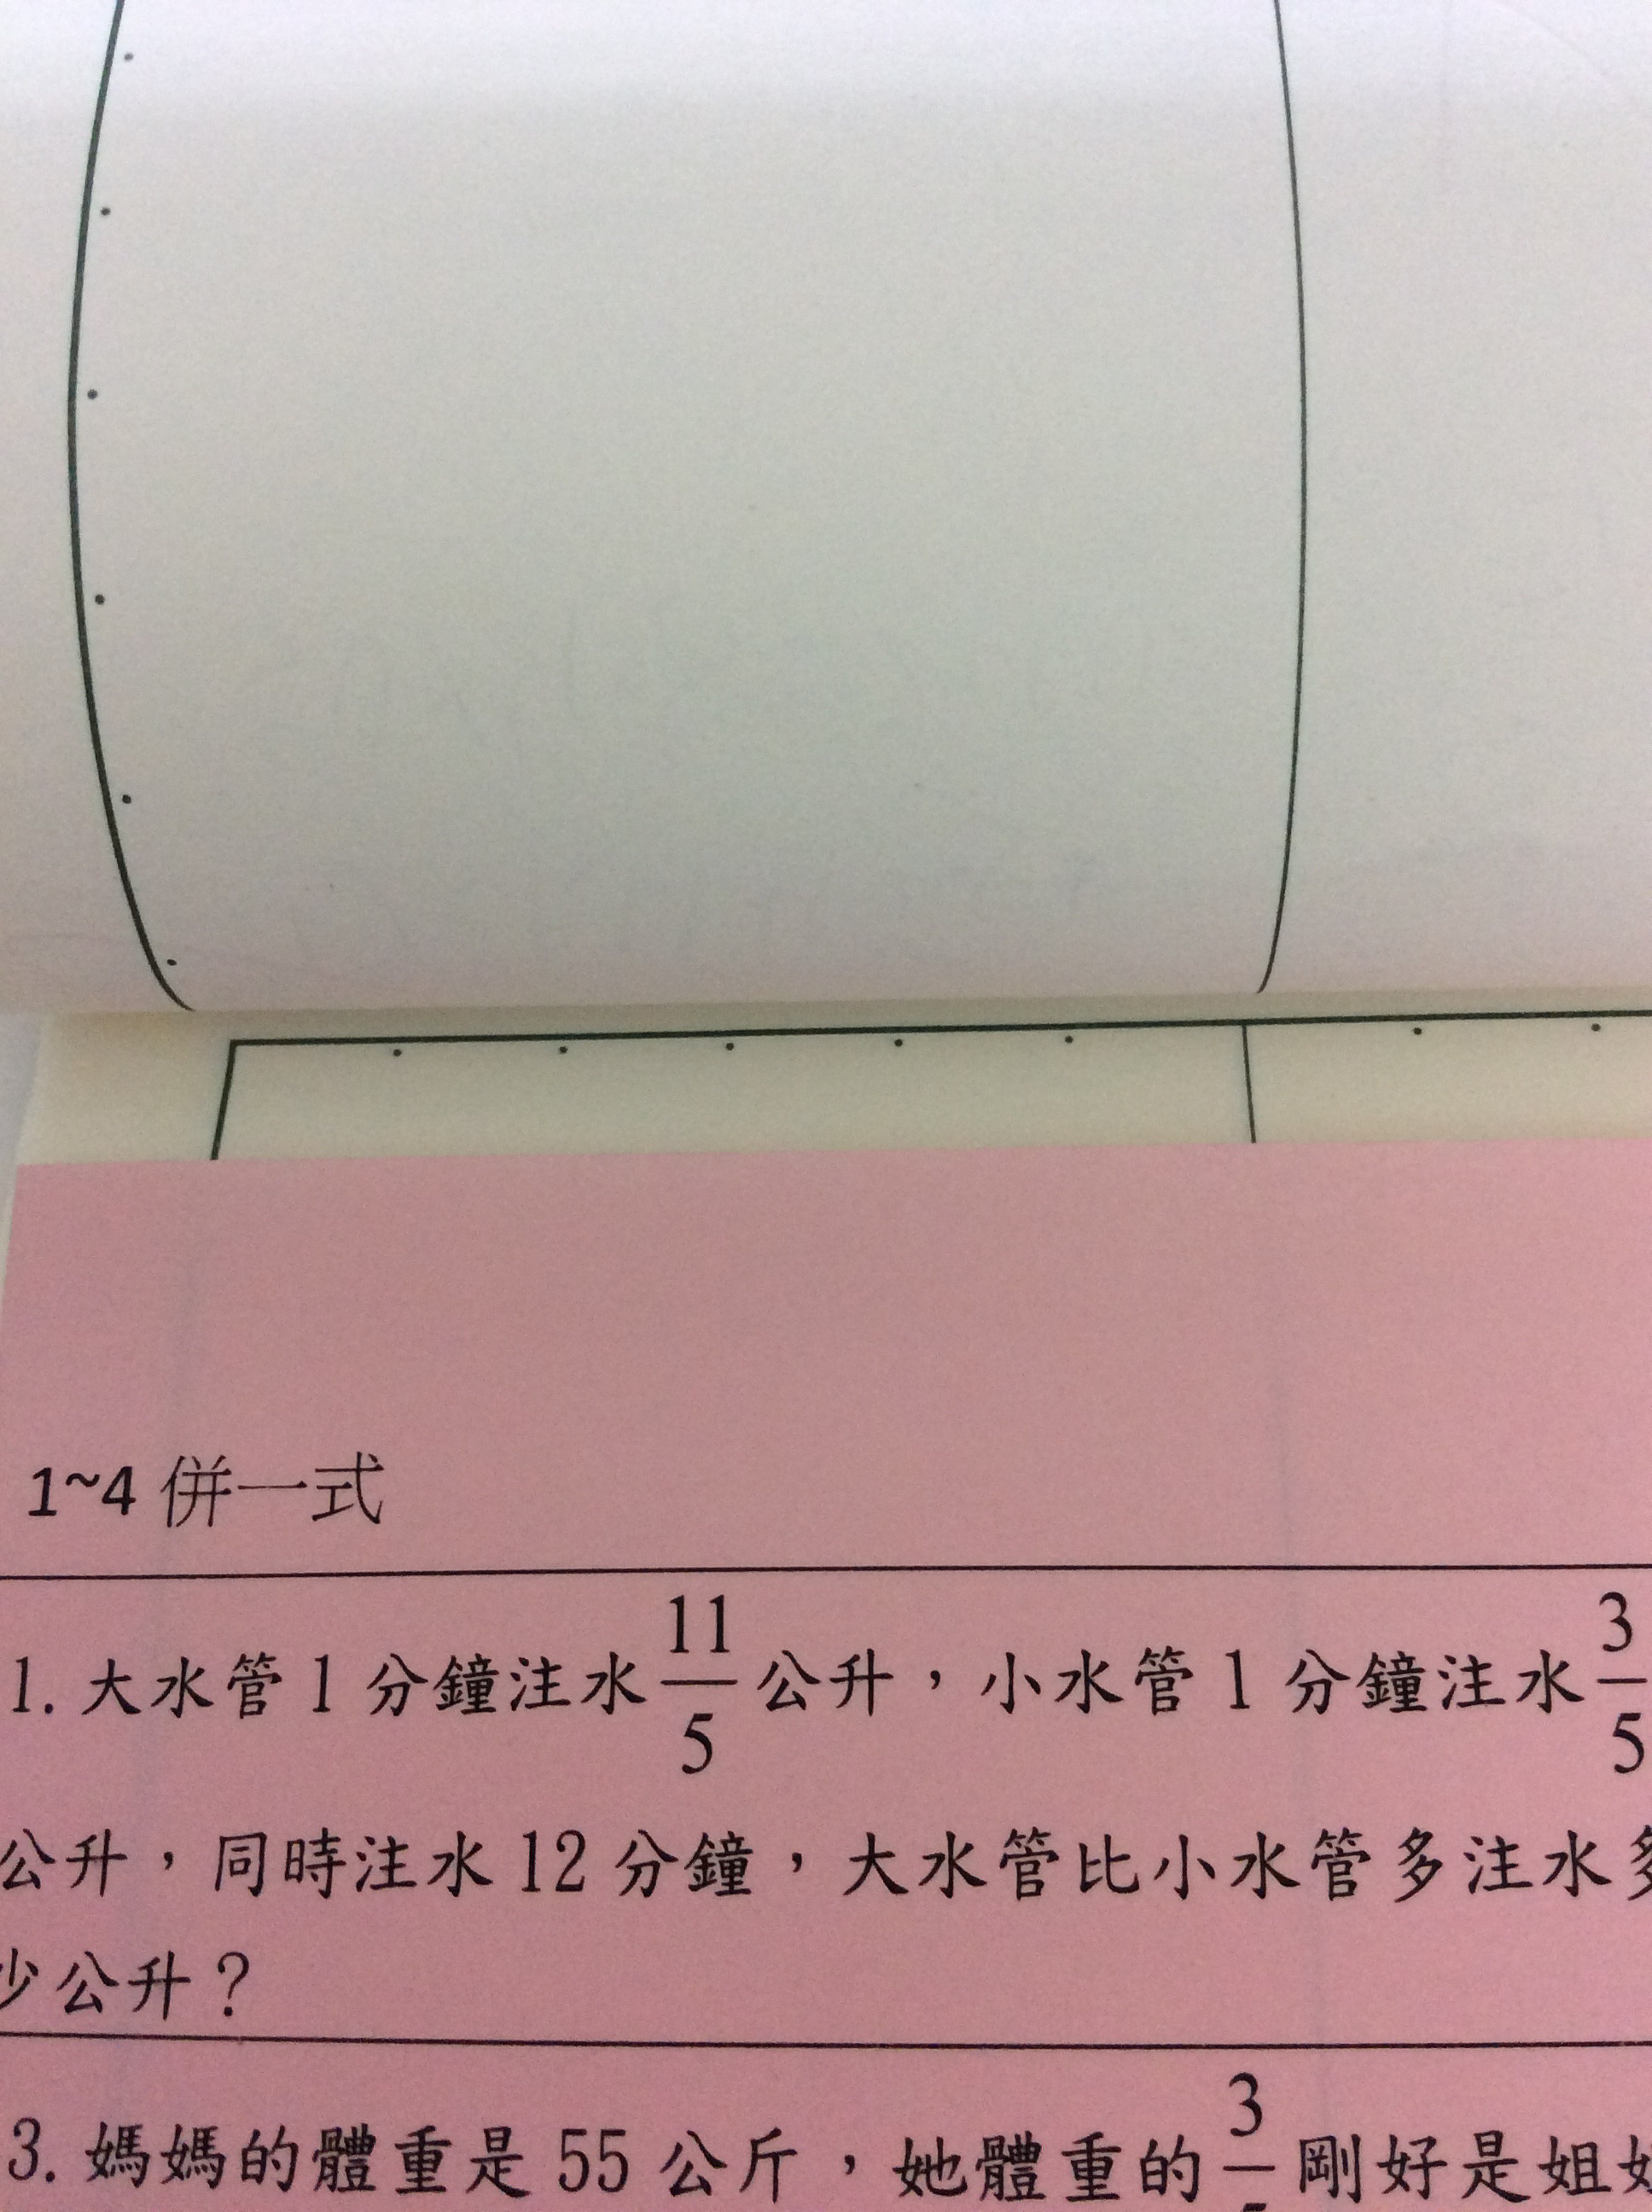 1~4 併一式
1. 大水管 1 分鐘注水 11/5 公升，小水管 1 分鐘注水 3/5
公升，同時注水 12 分鐘，大水管比小水管多注水多
少公升？
3. 媽媽的體重是 55 公斤，她體重的 3/ 剛好是姐